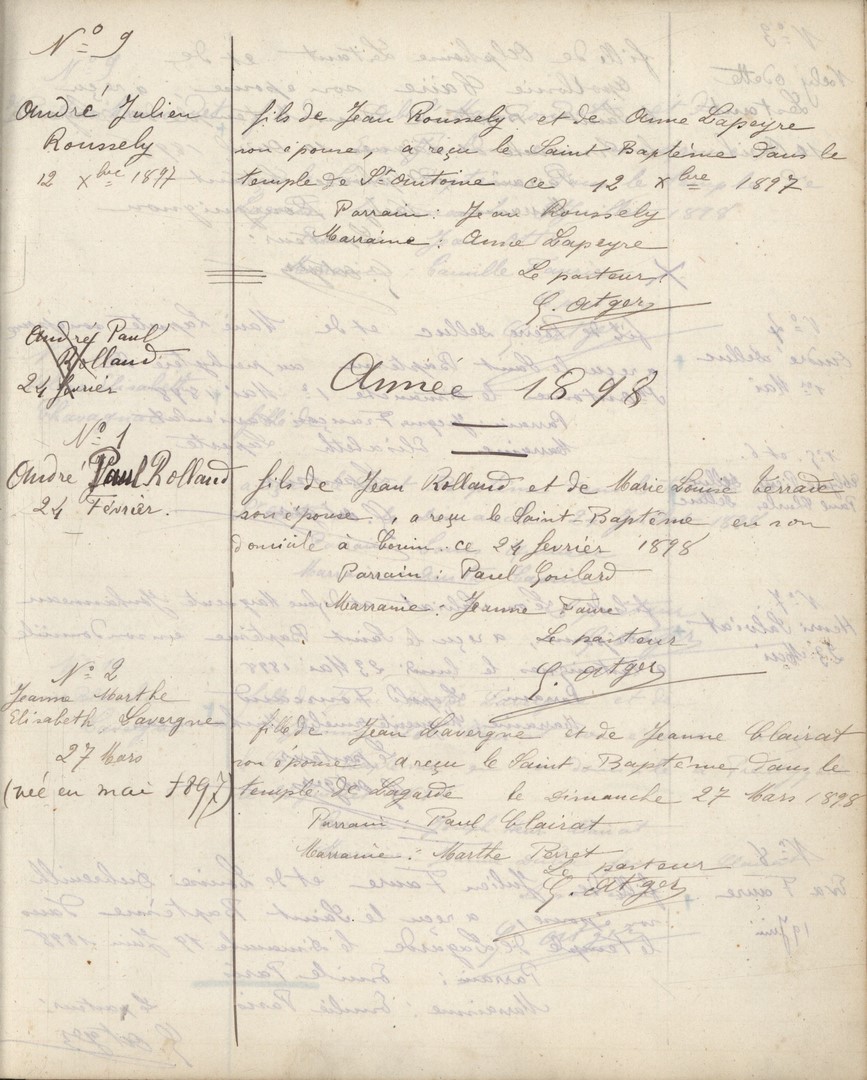 N° 9
André Julien
Roussely
12 Xbre 1897
fils de Jean Roussely et de Anne Lapeyre
son épouse, a reçu le Saint Baptême dans le
temple de St Antoine ce 12 Xbre 1897
Parrain : Jean Roussely
Marraine : Anne Lapeyre
Le pasteur
G. Atger
André Paul
Rolland
24 février
Année 1898
N° 1
André Paul Rolland
24 Février.
fils de Jean Rolland et de Marie Louise Terrade
son épouse, a reçu le Saint-Baptême en son
domicile à ce 24 fevrier 1898
Parrain : Paul Goulard
Marraine : Jeanne Faure
Le pasteur
G. Atger
N° 2
Jeanne Marthe
Elisabeth Lavergne
27 Mars
(née en mai 1897)
fille de Jean Lavergne et de Jeanne Clairat
son épouse a reçu le Saint-Baptême dans le
temple de Lagarde le dimanche 27 Mars 1898
Parrain : Paul Clairat
Marraine : Marthe Perret
Le pasteur
G. Atger